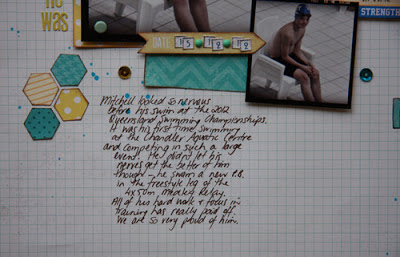 He
was
DATE 15 12 12
STRENGTH
Mitchell looked so nervous
before his swim at the 2012
Queensland Swimming Championships.
It was his first time swimming
at the Chandler Aquatic Centre
and competing in such a large
event. He didn't let his
nerves get the better of him
though - he swam a new P.B.
in the freestyle leg of the
4x50m Medley Relay.
All of his hard work + focus in
training has really paid off.
We are so very proud of him.